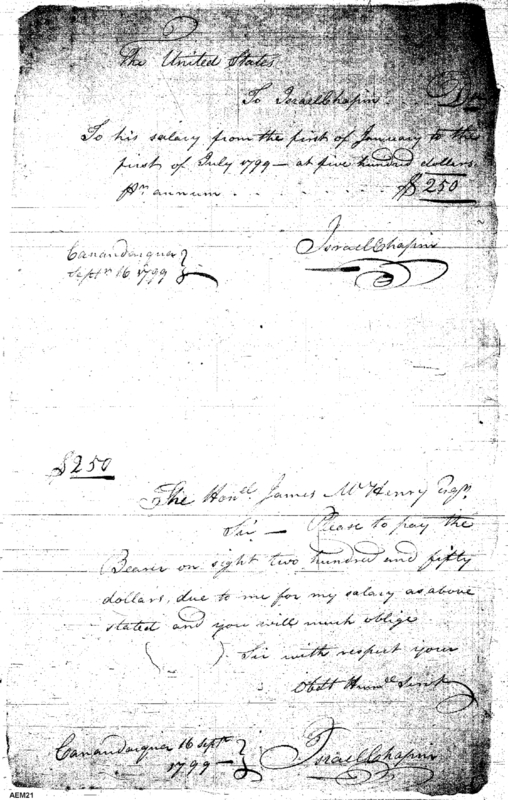 The United States
To Israel Chapin . . . Dr
To his salary from the first of January to the
first of July 1799 — at five hundred dollars
pr annum . . . . . . . . $250
Israel Chapin
Canandarqua }
Septr 16 1799 }
$250
The Honl. James McHenry Esqr.
Sir — Please to pay the
Bearer on sight two hundred and fifty
dollars, due to me for my salary as above
stated and you will much oblige
( ) Sir with respect your
Obdt Humle Servt
Canandarqua 16 Septr }
1799 — }
Israel Chapin
AEM21